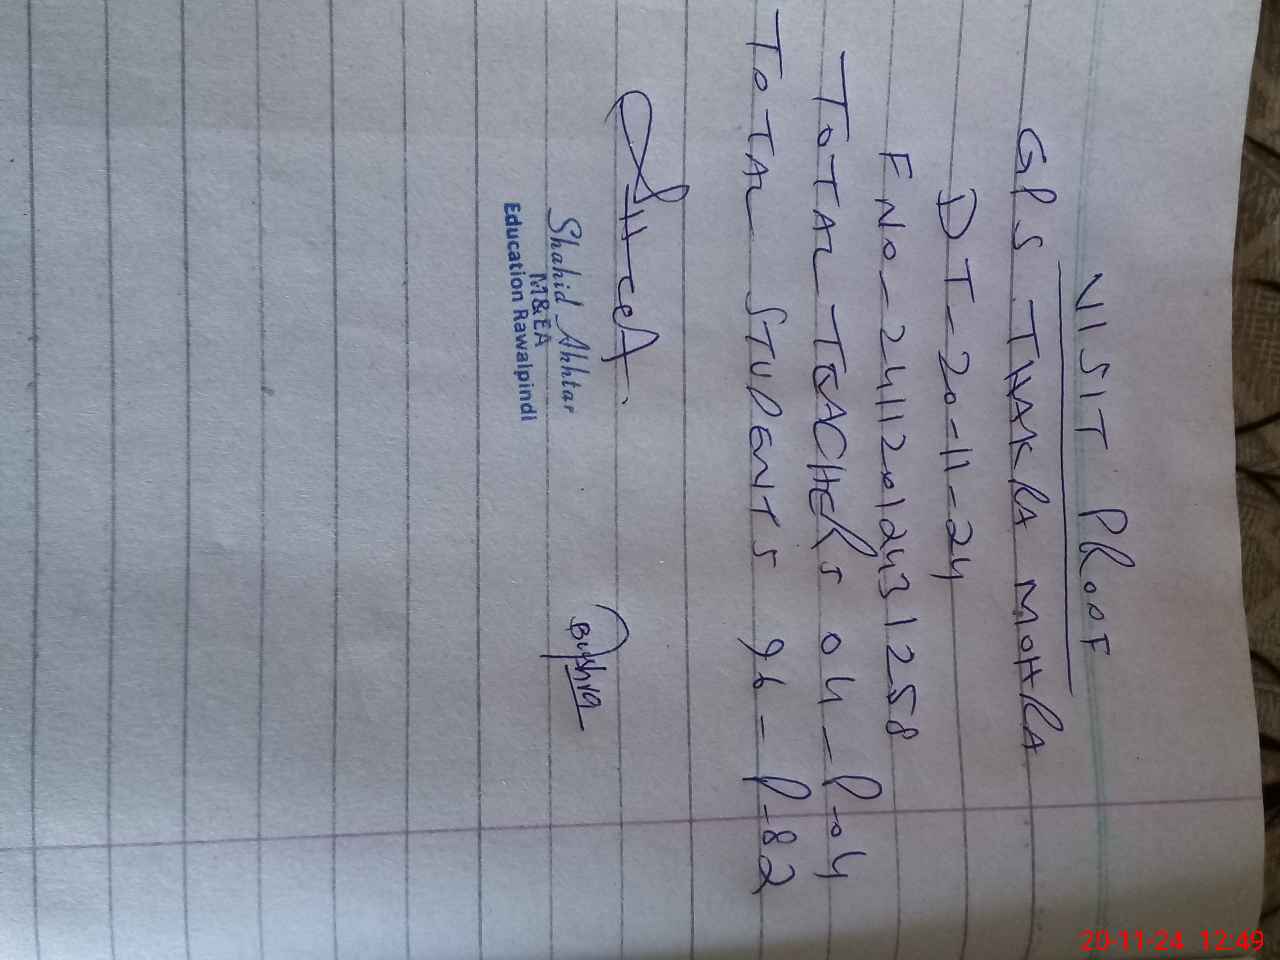 VISIT PROOF
GPS THAKRA MOHRA
DT-20-11-24
F NO-24112012431258
TOTAL TEACHERS 04-P-04
TOTAL STUDENTS 96-P-82
Shahid Akhtar
M&EA
Education Rawalpindi
Bushra
20-11-24 12:49